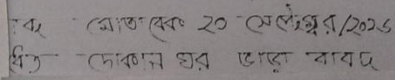 মোতাবেক ২০ সেপ্টেম্বর/২০২৬
দোকান ঘর ভাড়া বাবদ